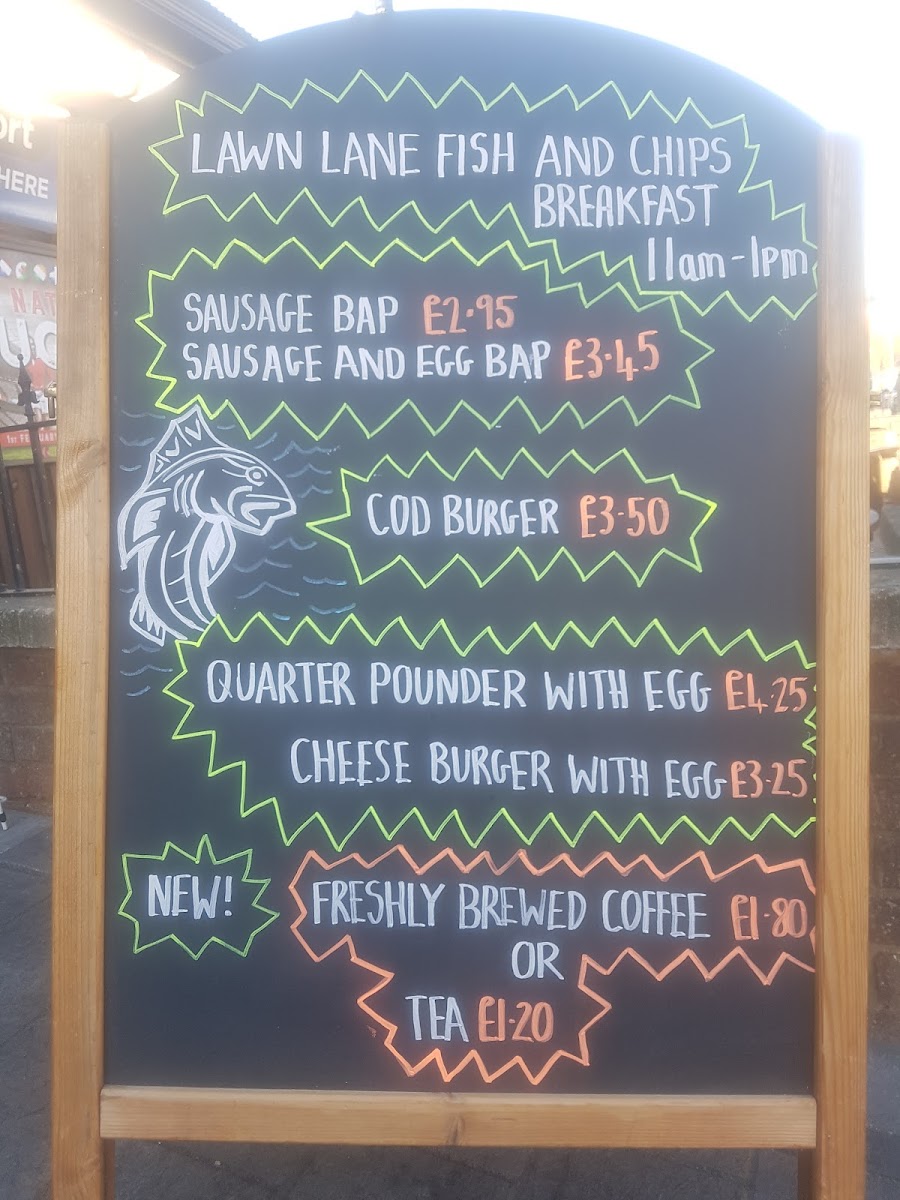 ort
HERE
LAWN LANE FISH AND CHIPS
BREAKFAST
11am-1pm
SAUSAGE BAP £2.95
SAUSAGE AND EGG BAP £3.45
COD BURGER £3.50
QUARTER POUNDER WITH EGG £4.25
CHEESE BURGER WITH EGG £3.25
NEW!
FRESHLY BREWED COFFEE £1.80
OR
TEA £1.20